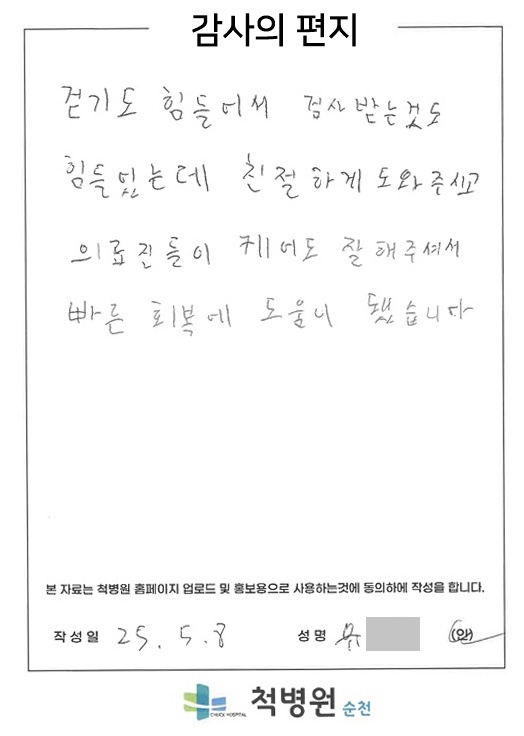 감사의 편지
걷기도 힘들어서 검사받는것도
힘들었는데 친절하게 도와주시고
의료진들이 케어도 잘해주셔서
빠른 회복에 도움이 됐습니다
본 자료는 척병원 홈페이지 업로드 및 홍보용으로 사용하는것에 동의하에 작성을 합니다.
작성일 25. 5. 8 성명 유 (인)
CHUCK HOSPITAL 척병원 순천